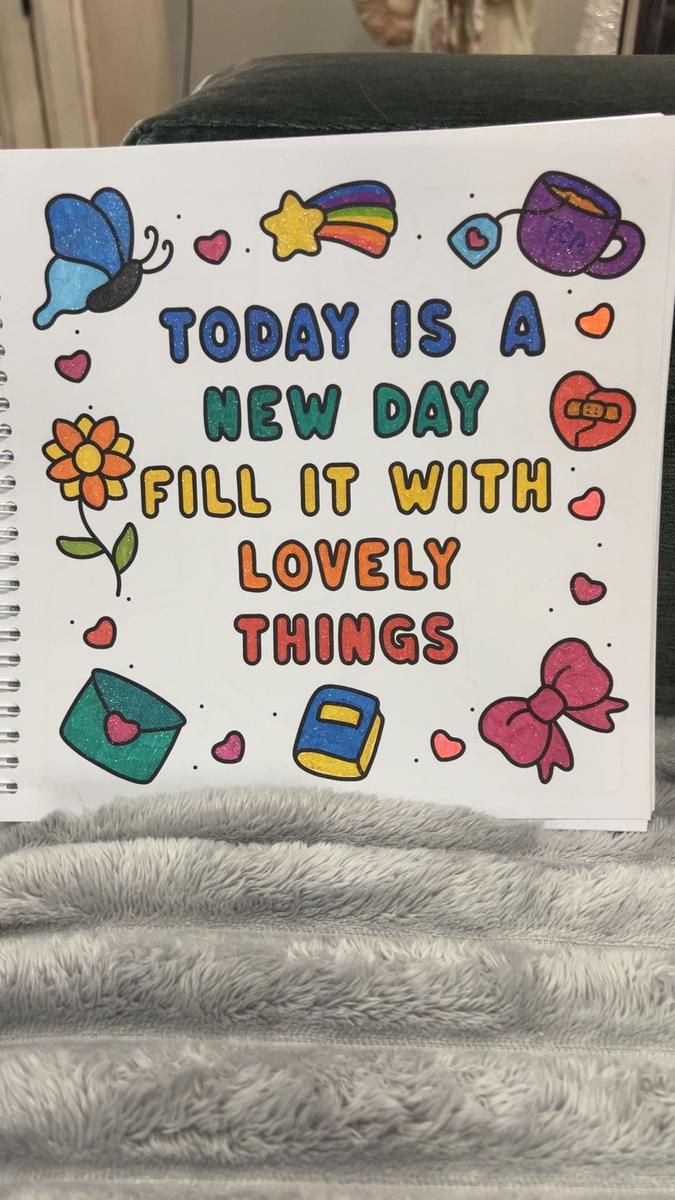 TEA
TODAY IS A
NEW DAY
FILL IT WITH
LOVELY
THINGS